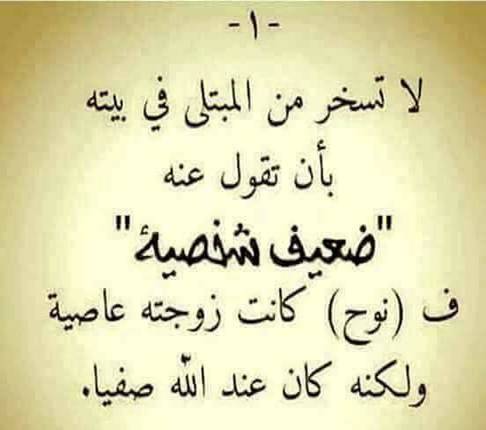 -١-
لا تسخر من المبتلى في بيته
بأن تقول عنه
"ضعيف شخصية"
ف (نوح) كانت زوجته عاصية
ولكنه كان عند الله صفيا.